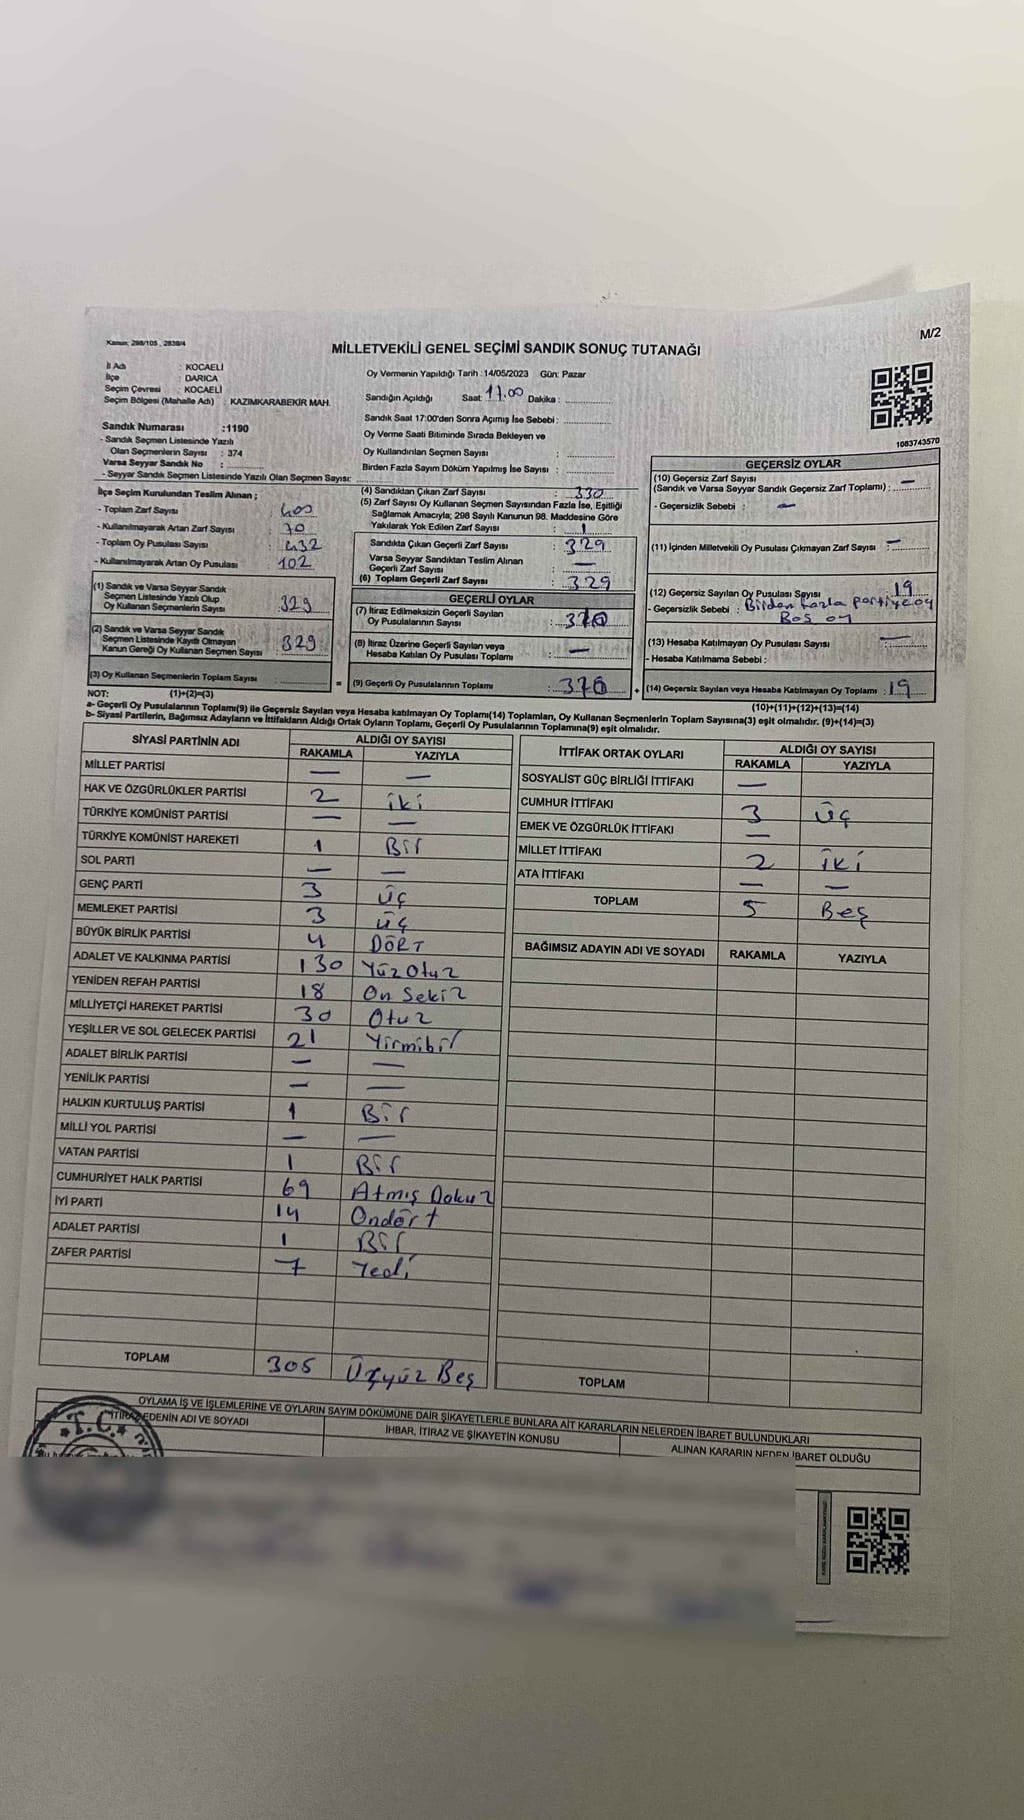 Kanun; 298/105 , 2839/4
M/2
MİLLETVEKİLİ GENEL SEÇİMİ SANDIK SONUÇ TUTANAĞI
İl Adı : KOCAELİ
İlçe : DARICA
Seçim Çevresi : KOCAELİ
Seçim Bölgesi (Mahalle Adı) : KAZIMKARABEKİR MAH.
Sandık Numarası :1190
- Sandık Seçmen Listesinde Yazılı
Olan Seçmenlerin Sayısı : 374
Varsa Seyyar Sandık No :
- Seyyar Sandık Seçmen Listesinde Yazılı Olan Seçmen Sayısı:
Oy Vermenin Yapıldığı Tarih :14/05/2023 Gün: Pazar
Sandığın Açıldığı Saat: 17.00 Dakika :
Sandık Saat 17:00'den Sonra Açımış İse Sebebi :
Oy Verme Saati Bitiminde Sırada Bekleyen ve
Oy Kullandırılan Seçmen Sayısı :
Birden Fazla Sayım Döküm Yapılmış İse Sayısı :
1083743570
İlçe Seçim Kurulundan Teslim Alınan ;
- Toplam Zarf Sayısı : 400
- Kullanılmayarak Artan Zarf Sayısı : 70
- Toplam Oy Pusulası Sayısı : 432
- Kullanılmayarak Artan Oy Pusulası : 102
(1) Sandık ve Varsa Seyyar Sandık
Seçmen Listesinde Yazılı Olup
Oy Kullanan Seçmenlerin Sayısı : 329
(2) Sandık ve Varsa Seyyar Sandık
Seçmen Listesinde Kayıtlı Olmayan
Kanun Gereği Oy Kullanan Seçmen Sayısı : 329
(3) Oy Kullanan Seçmenlerin Toplam Sayısı :
(4) Sandıktan Çıkan Zarf Sayısı : 330
(5) Zarf Sayısı Oy Kullanan Seçmen Sayısından Fazla İse, Eşitliği
Sağlamak Amacıyla; 298 Sayılı Kanunun 98. Maddesine Göre
Yakılarak Yok Edilen Zarf Sayısı : 1
Sandıkta Çıkan Geçerli Zarf Sayısı : 329
Varsa Seyyar Sandıktan Teslim Alınan
Geçerli Zarf Sayısı : —
(6) Toplam Geçerli Zarf Sayısı : 329
GEÇERLİ OYLAR
(7) İtiraz Edilmeksizin Geçerli Sayılan
Oy Pusulalarının Sayısı :
(8) İtiraz Üzerine Geçerli Sayılan veya
Hesaba Katılan Oy Pusulası Toplamı : —
= (9) Geçerli Oy Pusulalarının Toplamı :
GEÇERSİZ OYLAR
(10) Geçersiz Zarf Sayısı
(Sandık ve Varsa Seyyar Sandık Geçersiz Zarf Toplamı) : —
- Geçersizlik Sebebi : —
(11) İçinden Milletvekili Oy Pusulası Çıkmayan Zarf Sayısı : —
(12) Geçersiz Sayılan Oy Pusulası Sayısı : 19
- Geçersizlik Sebebi : Birden fazla partiye oy
Boş oy
(13) Hesaba Katılmayan Oy Pusulası Sayısı : —
- Hesaba Katılmama Sebebi :
+ (14) Geçersiz Sayılan veya Hesaba Katılmayan Oy Toplamı : 19
NOT: (1)+(2)=(3)
(10)+(11)+(12)+(13)=(14)
a- Geçerli Oy Pusulalarının Toplamı(9) ile Geçersiz Sayılan veya Hesaba katılmayan Oy Toplamı(14) Toplamları, Oy Kullanan Seçmenlerin Toplam Sayısına(3) eşit olmalıdır. (9)+(14)=(3)
b- Siyasi Partilerin, Bağımsız Adayların ve İttifakların Aldığı Ortak Oyların Toplamı, Geçerli Oy Pusulalarının Toplamına(9) eşit olmalıdır.
SİYASİ PARTİNİN ADI
ALDIĞI OY SAYISI
RAKAMLA YAZIYLA
MİLLET PARTİSİ — —
HAK VE ÖZGÜRLÜKLER PARTİSİ 2 iki
TÜRKİYE KOMÜNİST PARTİSİ — —
TÜRKİYE KOMÜNİST HAREKETİ 1 Bir
SOL PARTİ — —
GENÇ PARTİ 3 üç
MEMLEKET PARTİSİ 3 üç
BÜYÜK BİRLİK PARTİSİ 4 DÖRT
ADALET VE KALKINMA PARTİSİ 130 YüzOtuz
YENİDEN REFAH PARTİSİ 18 On Sekiz
MİLLİYETÇİ HAREKET PARTİSİ 30 Otuz
YEŞİLLER VE SOL GELECEK PARTİSİ 21 Yirmibir
ADALET BİRLİK PARTİSİ — —
YENİLİK PARTİSİ — —
HALKIN KURTULUŞ PARTİSİ 1 Bir
MİLLİ YOL PARTİSİ — —
VATAN PARTİSİ 1 Bir
CUMHURİYET HALK PARTİSİ 69 Atmış Dokuz
İYİ PARTİ 14 Ondört
ADALET PARTİSİ 1 Bir
ZAFER PARTİSİ 7 Yedi
TOPLAM 305 Üçyüz Beş
İTTİFAK ORTAK OYLARI
ALDIĞI OY SAYISI
RAKAMLA YAZIYLA
SOSYALİST GÜÇ BİRLİĞİ İTTİFAKI —
CUMHUR İTTİFAKI 3 Üç
EMEK VE ÖZGÜRLÜK İTTİFAKI —
MİLLET İTTİFAKI 2 İki
ATA İTTİFAKI — —
TOPLAM 5 Beş
BAĞIMSIZ ADAYIN ADI VE SOYADI RAKAMLA YAZIYLA
TOPLAM
OYLAMA İŞ VE İŞLEMLERİNE VE OYLARIN SAYIM DÖKÜMÜNE DAİR ŞİKAYETLERLE BUNLARA AİT KARARLARIN NELERDEN İBARET BULUNDUKLARI
İTİRAZ EDENİN ADI VE SOYADI
İHBAR, İTİRAZ VE ŞİKAYETİN KONUSU
ALINAN KARARIN NEDEN İBARET OLDUĞU
T.C.